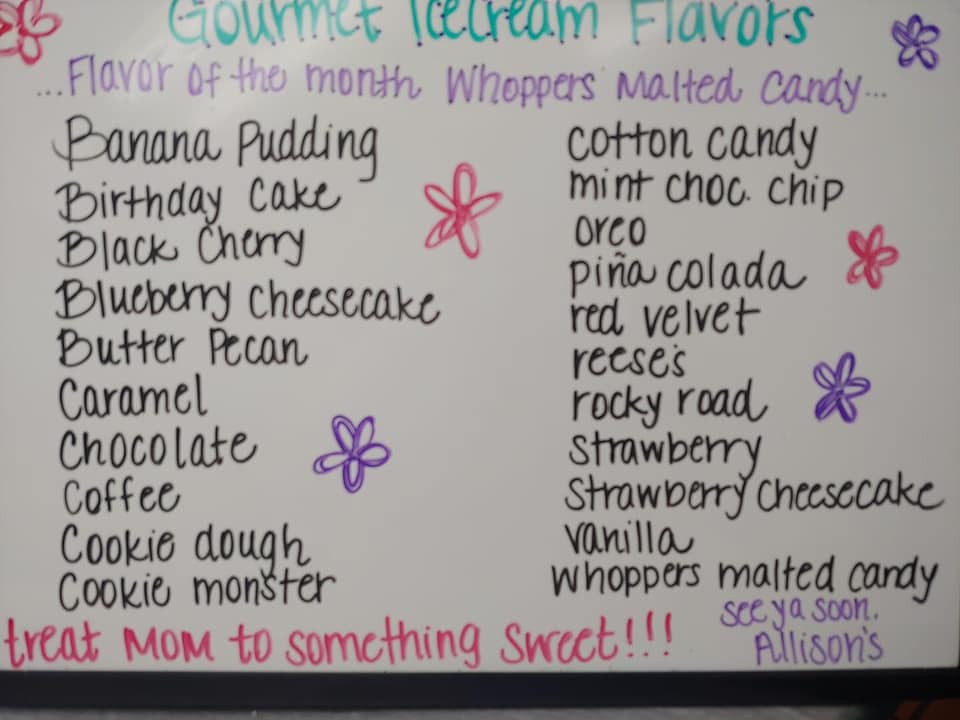 Gourmet Icecream Flavors
...Flavor of the month Whoppers Malted Candy...
Banana Pudding
Birthday Cake
Black Cherry
Blueberry Cheesecake
Butter Pecan
Caramel
Chocolate
Coffee
Cookie dough
Cookie monster
cotton candy
mint choc. chip
oreo
piña colada
red velvet
reese's
rocky road
strawberry
strawberry cheesecake
vanilla
whoppers malted candy
treat MOM to something sweet!!!
see ya soon.
Allison's